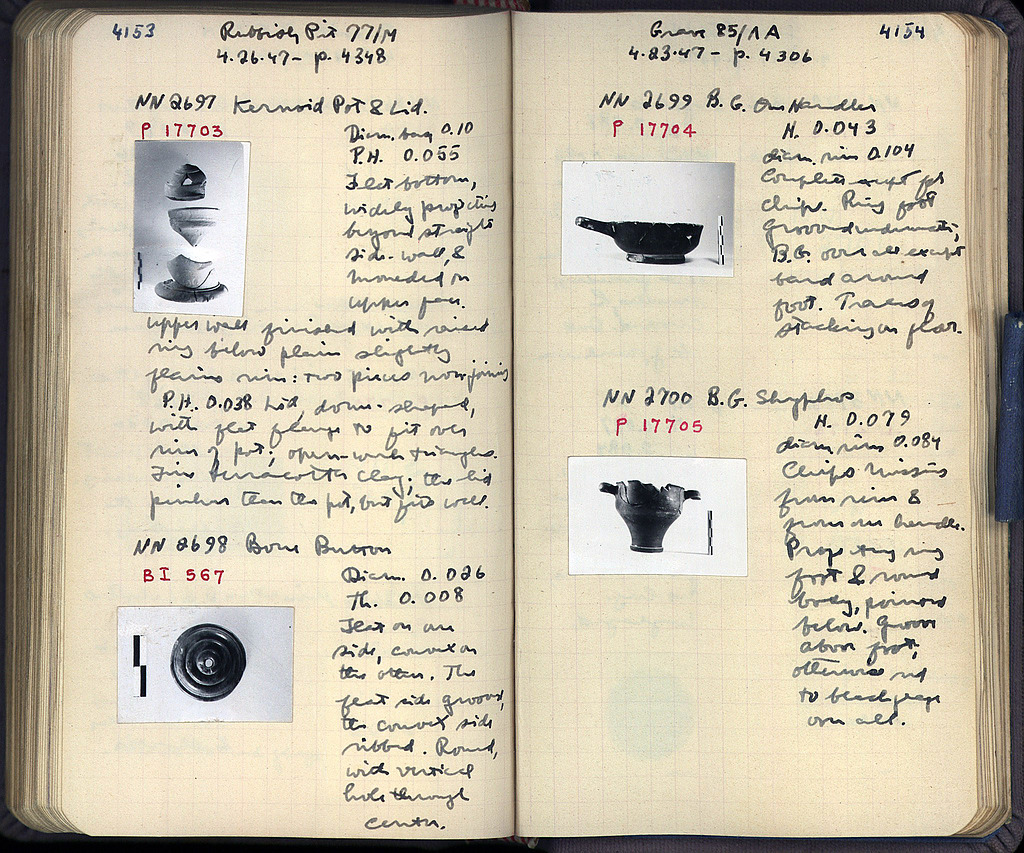 4153
Rubbish Pit 77/M
4.26.47 – p. 4348
NN 2697 Kernoid Pot & Lid.
P 17703
Diam. base 0.10
P.H. 0.055
Flat bottom,
widely projecting
beyond straight
side-wall, &
moulded on
upper face.
upper wall finished with raised
ring below plain slightly
flaring rim: two pieces non-joining
P.H. 0.038 Lid, dome-shaped,
with flat flange to fit over
rim of pot; open-work triangles.
Fine terracotta clay; the lid
pinker than the pot, but fits well.
NN 2698 Bone Button
BI 567
Diam. 0.026
Th. 0.008
Flat on one
side, convex on
the other. The
flat side grooved,
the convex side
ribbed. Round,
with vertical
hole through
center.
4154
Grave 85/ΛA
4.23.47 – p. 4306
NN 2699 B.G. One Handler
P 17704
H. 0.043
diam. rim 0.104
Complete except for
chips. Ring foot
grooved underneath,
B.G. over all except
band around
foot. Traces of
stacking on floor.
NN 2700 B.G. Skyphos
P 17705
H. 0.079
diam. rim 0.084
Chips missing
from rim &
from one handle.
Projecting ring
foot & round
body, pointed
below. Groove
above foot,
otherwise red
to black glaze
over all.